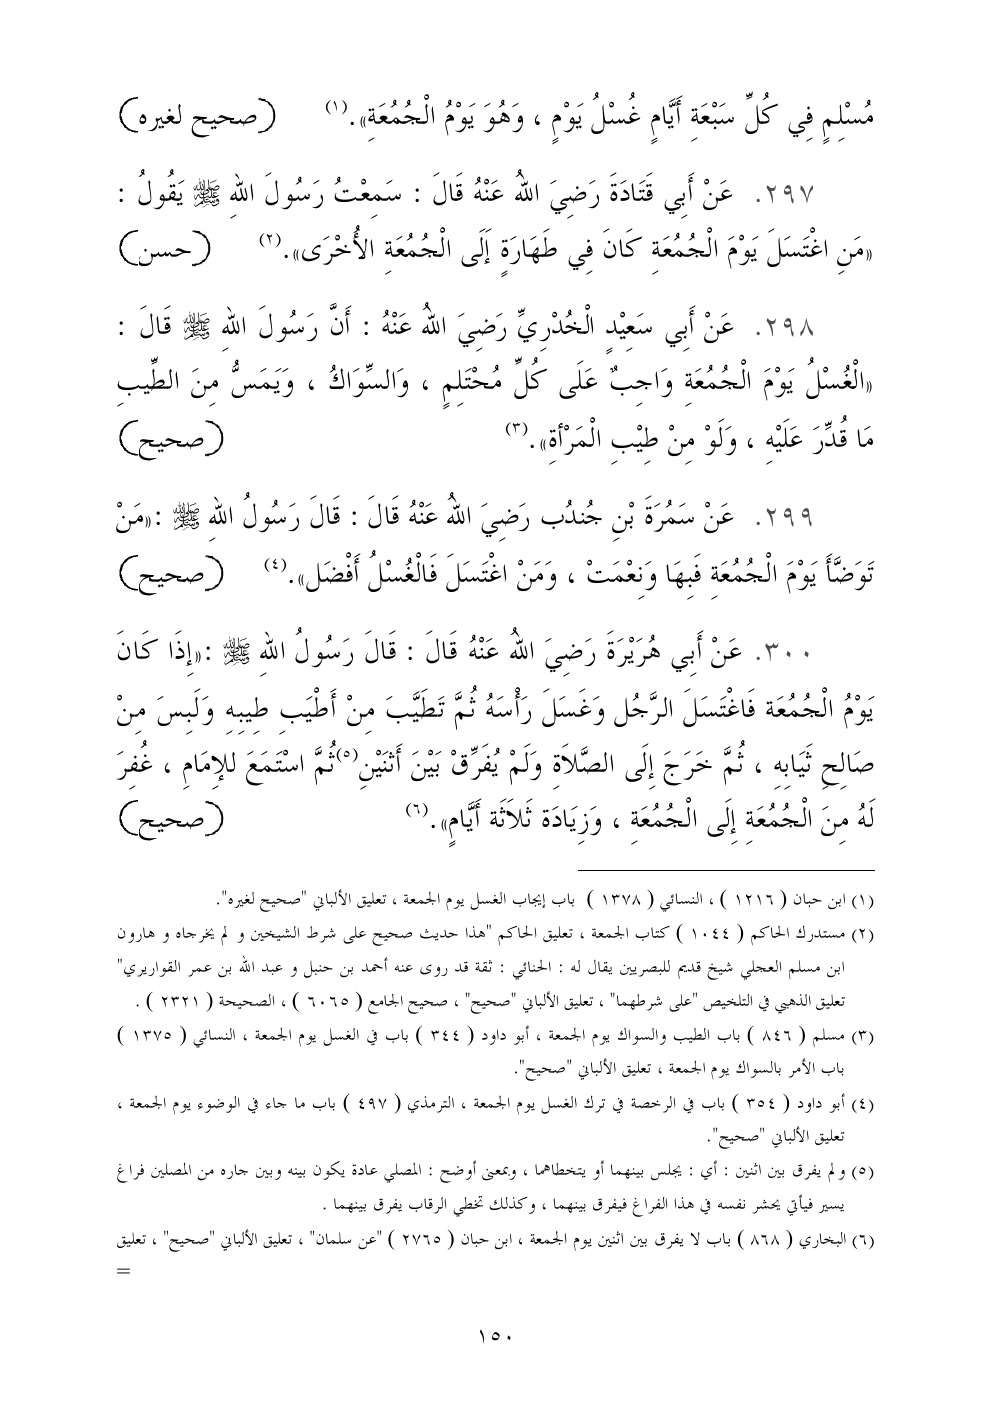 مُسْلِمٍ فِي كُلِّ سَبْعَةِ أَيَّامٍ غُسْلُ يَوْمٍ ، وَهُوَ يَوْمُ الْجُمُعَةِ».(١) (صحيح لغيره)
٢٩٧. عَنْ أَبِي قَتَادَةَ رَضِيَ اللهُ عَنْهُ قَالَ : سَمِعْتُ رَسُولَ اللهِ ﷺ يَقُولُ :
«مَنِ اغْتَسَلَ يَوْمَ الْجُمُعَةِ كَانَ فِي طَهَارَةٍ إَلَى الْجُمُعَةِ الأُخْرَى».(٢) (حسن)
٢٩٨. عَنْ أَبِي سَعِيْدٍ الْخُدْرِيِّ رَضِيَ اللهُ عَنْهُ : أَنَّ رَسُولَ اللهِ ﷺ قَالَ :
«الْغُسْلُ يَوْمَ الْجُمُعَةِ وَاجِبٌ عَلَى كُلِّ مُحْتَلِمٍ ، وَالسِّوَاكُ ، وَيَمَسُّ مِنَ الطِّيبِ
مَا قُدِّرَ عَلَيْهِ ، وَلَوْ مِنْ طِيْبِ الْمَرْأةِ».(٣) (صحيح)
٢٩٩. عَنْ سَمُرَةَ بْنِ جُندُب رَضِيَ اللهُ عَنْهُ قَالَ : قَالَ رَسُولُ اللهِ ﷺ :«مَنْ
تَوَضَّأَ يَوْمَ الْجُمُعَةِ فَبِهَا وَنِعْمَتْ ، وَمَنْ اغْتَسَلَ فَالْغُسْلُ أَفْضَل».(٤) (صحيح)
٣٠٠. عَنْ أَبِي هُرَيْرَةَ رَضِيَ اللهُ عَنْهُ قَالَ : قَالَ رَسُولُ اللهِ ﷺ :«إِذَا كَانَ
يَوْمُ الْجُمُعَة فَاغْتَسَلَ الرَّجُل وَغَسَلَ رَأْسَهُ ثُمَّ تَطَيَّبَ مِنْ أَطْيَبِ طِيبِهِ وَلَبِسَ مِنْ
صَالِحِ ثَيَابِهِ ، ثُمَّ خَرَجَ إِلَى الصَّلاَةِ وَلَمْ يُفَرِّقْ بَيْنَ أثنَيْنِ(٥)ثُمَّ اسْتَمَعَ للإِمَامِ ، غُفِرَ
لَهُ مِنَ الْجُمُعَةِ إِلَى الْجُمُعَةِ ، وَزِيَادَة ثَلاَثَة أَيَّامٍ».(٦) (صحيح)
(١) ابن حبان ( ١٢١٦ ) ، النسائي ( ١٣٧٨ ) باب إيجاب الغسل يوم الجمعة ، تعليق الألباني "صحيح لغيره".
(٢) مستدرك الحاكم ( ١٠٤٤ ) كتاب الجمعة ، تعليق الحاكم "هذا حديث صحيح على شرط الشيخين و لم يخرجاه و هارون
ابن مسلم العجلي شيخ قديم للبصريين يقال له : الحنائي : ثقة قد روى عنه أحمد بن حنبل و عبد الله بن عمر القواريري"
تعليق الذهبي في التلخيص "على شرطهما" ، تعليق الألباني "صحيح" ، صحيح الجامع ( ٦٠٦٥ ) ، الصحيحة ( ٢٣٢١ ) .
(٣) مسلم ( ٨٤٦ ) باب الطيب والسواك يوم الجمعة ، أبو داود ( ٣٤٤ ) باب في الغسل يوم الجمعة ، النسائي ( ١٣٧٥ )
باب الأمر بالسواك يوم الجمعة ، تعليق الألباني "صحيح".
(٤) أبو داود ( ٣٥٤ ) باب في الرخصة في ترك الغسل يوم الجمعة ، الترمذي ( ٤٩٧ ) باب ما جاء في الوضوء يوم الجمعة ،
تعليق الألباني "صحيح".
(٥) ولم يفرق بين اثنين : أي : يجلس بينهما أو يتخطاهما ، وبمعنى أوضح : المصلي عادة يكون بينه وبين جاره من المصلين فراغ
يسير فيأتي يحشر نفسه في هذا الفراغ فيفرق بينهما ، وكذلك تخطي الرقاب يفرق بينهما .
(٦) البخاري ( ٨٦٨ ) باب لا يفرق بين اثنين يوم الجمعة ، ابن حبان ( ٢٧٦٥ ) "عن سلمان" ، تعليق الألباني "صحيح" ، تعليق
=
١٥٠